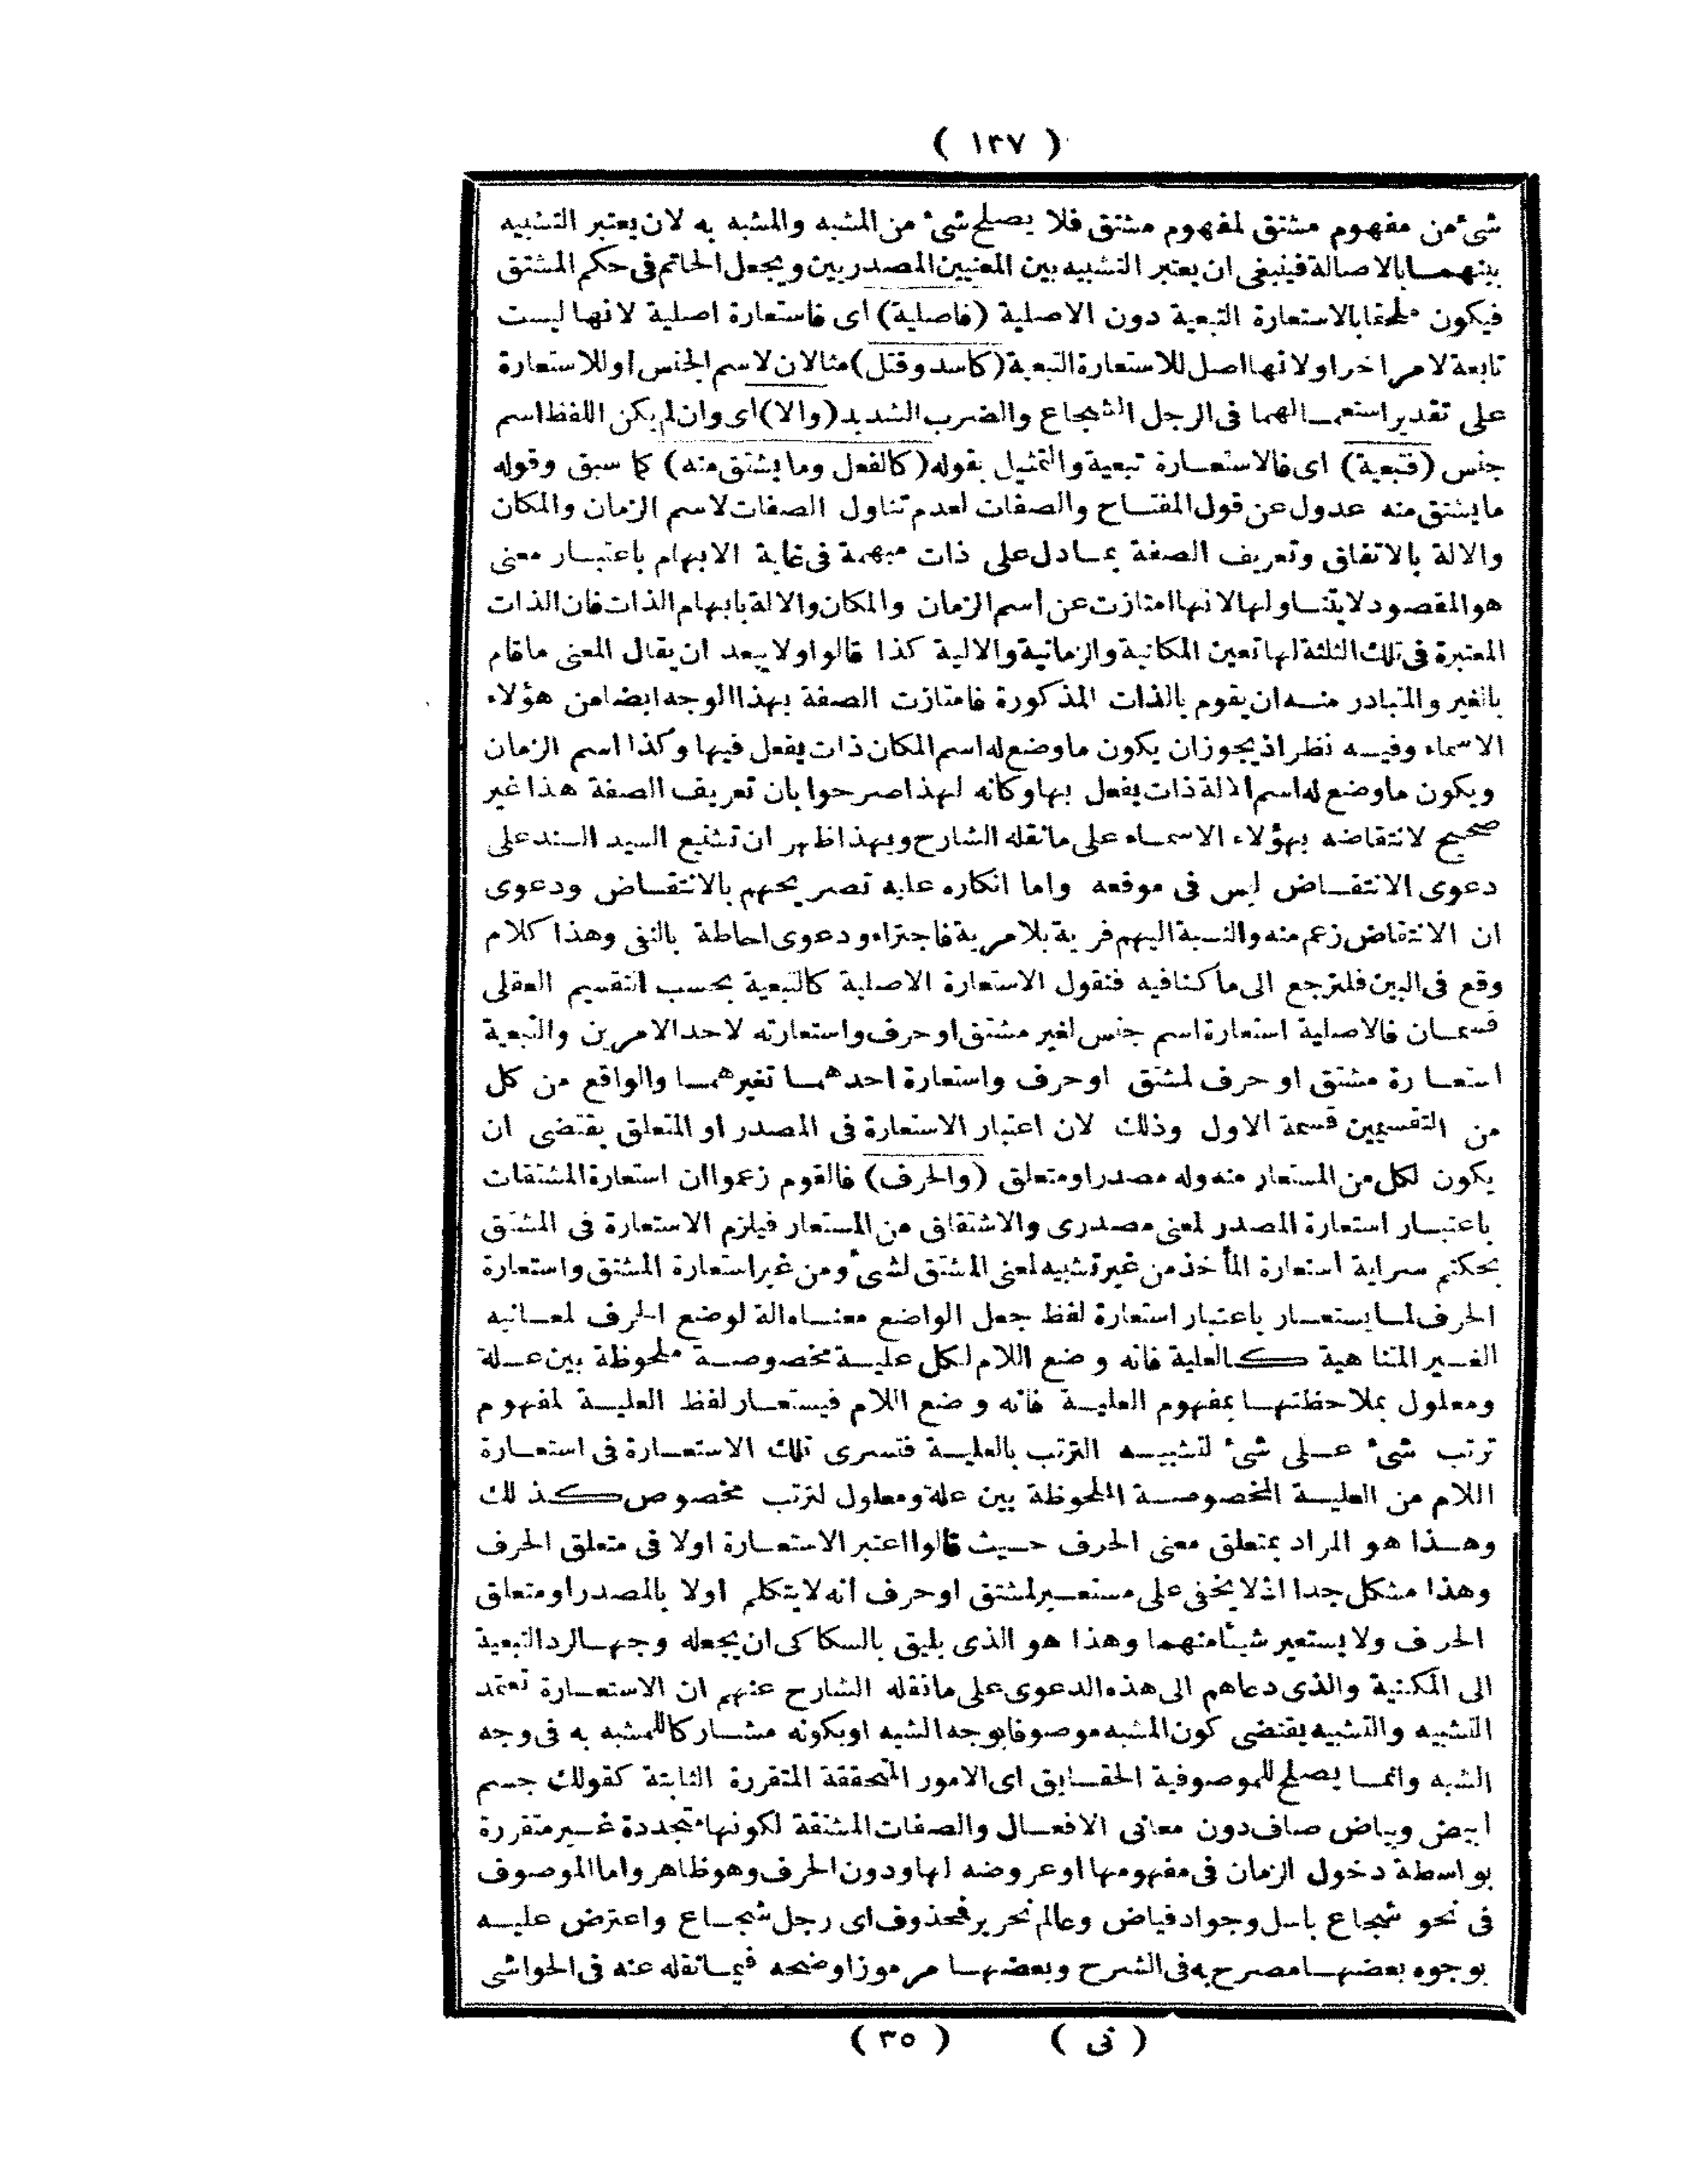 ( ١٣٧ )
شئ من مفهوم مشتق لمفهوم مشتق فلا يصلح شئ من المشبه والمشبه به لان يعتبر التشبيه
بينهما بالاصالة فينبغى ان يعتبر التشبيه بين المعنيين المصدريين ويجعل الحاتم فى حكم المشتق
فيكون ملحقا بالاستعارة التبعية دون الاصلية (فاصلية) اى فاستعارة اصلية لانها ليست
تابعة لامر اخر او لانها اصل للاستعارة التبعية (كاسد وقتل) مثالان لاسم الجنس او للاستعارة
على تقدير استعمالهما فى الرجل الشجاع والضرب الشديد (والا) اى وان لم يكن اللفظ اسم
جنس (فتبعية) اى فالاستعارة تبعية والتمثيل بقوله (كالفعل وما يشتق منه) كما سبق وقوله
ما يشتق منه عدول عن قول المفتاح والصفات لعدم تناول الصفات لاسم الزمان والمكان
والالة بالاتفاق وتعريف الصفة بما دل على ذات مبهمة فى غاية الابهام باعتبار معنى
هو المقصود لا يتناولها لانها امتازت عن اسم الزمان والمكان والالة بابهام الذات فان الذات
المعتبرة فى تلك الثلثة لها تعين المكانية والزمانية والالية كذا قالوا ولا يبعد ان يقال المعنى ما قام
بالغير والمتبادر منه ان يقوم بالذات المذكورة فامتازت الصفة بهذا الوجه ايضا من هؤلاء
الاسماء وفيه نظر اذ يجوز ان يكون ما وضع له اسم المكان ذات يفعل فيها وكذا اسم الزمان
ويكون ما وضع له اسم الالة ذات يفعل بها وكانه لهذا صرحوا بان تعريف الصفة هذا غير
صحيح لانتقاضه بهؤلاء الاسماء على ما نقله الشارح وبهذا ظهر ان تشنيع السيد السند على
دعوى الانتقاض ليس فى موقعه واما انكاره عليه تصريحهم بالانتقاض ودعوى
ان الانتقاض زعم منه والنسبة اليهم فرية بلا مرية فاجتراء ودعوى احاطة بالنفى وهذا كلام
وقع فى البين فلنرجع الى ما كنا فيه فنقول الاستعارة الاصلية كالتبعية بحسب التقسيم العقلى
قسمان فالاصلية استعارة اسم جنس لغير مشتق او حرف واستعارته لاحد الامرين والتبعية
استعارة مشتق او حرف لمشتق او حرف واستعارة احدهما لغيرهما والواقع من كل
من التقسيمين قسمة الاول وذلك لان اعتبار الاستعارة فى المصدر او المتعلق يقتضى ان
يكون لكل من المستعار منه وله مصدر او متعلق (والحرف) فالقوم زعموا ان استعارة المشتقات
باعتبار استعارة المصدر لمعنى مصدرى والاشتقاق من المستعار فيلزم الاستعارة فى المشتق
بحكم سراية استعارة المأخذ من غير تشبيه لمعنى المشتق لشئ ومن غير استعارة المشتق واستعارة
الحرف لما يستعار باعتبار استعارة لفظ جعل الواضع معناه الة لوضع الحرف لمعانيه
الغير المتناهية كالعلية فانه وضع اللام لكل علية مخصوصة ملحوظة بين علة
ومعلول بملاحظتها بمفهوم العلية فانه وضع اللام فيستعار لفظ العلية لمفهوم
ترتب شئ على شئ لتشبيه الترتب بالعلية فتسرى تلك الاستعارة فى استعارة
اللام من العلية المخصوصة الملحوظة بين علة ومعلول لترتب مخصوص كذلك
وهذا هو المراد بمتعلق معنى الحرف حيث قالوا اعتبر الاستعارة اولا فى متعلق الحرف
وهذا مشكل جدا اذ لا يخفى على مستعير لمشتق او حرف انه لا يتكلم اولا بالمصدر او متعلق
الحرف ولا يستعير شيئا منهما وهذا هو الذى يليق بالسكاكى ان يجعله وجها لرد التبعية
الى المكنية والذى دعاهم الى هذه الدعوى على ما نقله الشارح عنهم ان الاستعارة تعتمد
التشبيه والتشبيه يقتضى كون المشبه موصوفا بوجه الشبه او بكونه مشاركا للمشبه به فى وجه
الشبه وانما يصلح للموصوفية الحقايق اى الامور المتحققة المتقررة الثابتة كقولك جسم
ابيض وبياض صاف دون معانى الافعال والصفات المشتقة لكونها متجددة غير متقررة
بواسطة دخول الزمان فى مفهومها او عروضه لها ودون الحرف وهو ظاهر واما الموصوف
فى نحو شجاع باسل وجواد فياض وعالم نحرير فمحذوف اى رجل شجاع واعترض عليه
بوجوه بعضها مصرح به فى الشرح وبعضها مرموز اوضحه فيما نقله عنه فى الحواشى
( نى ) ( ٣٥ )